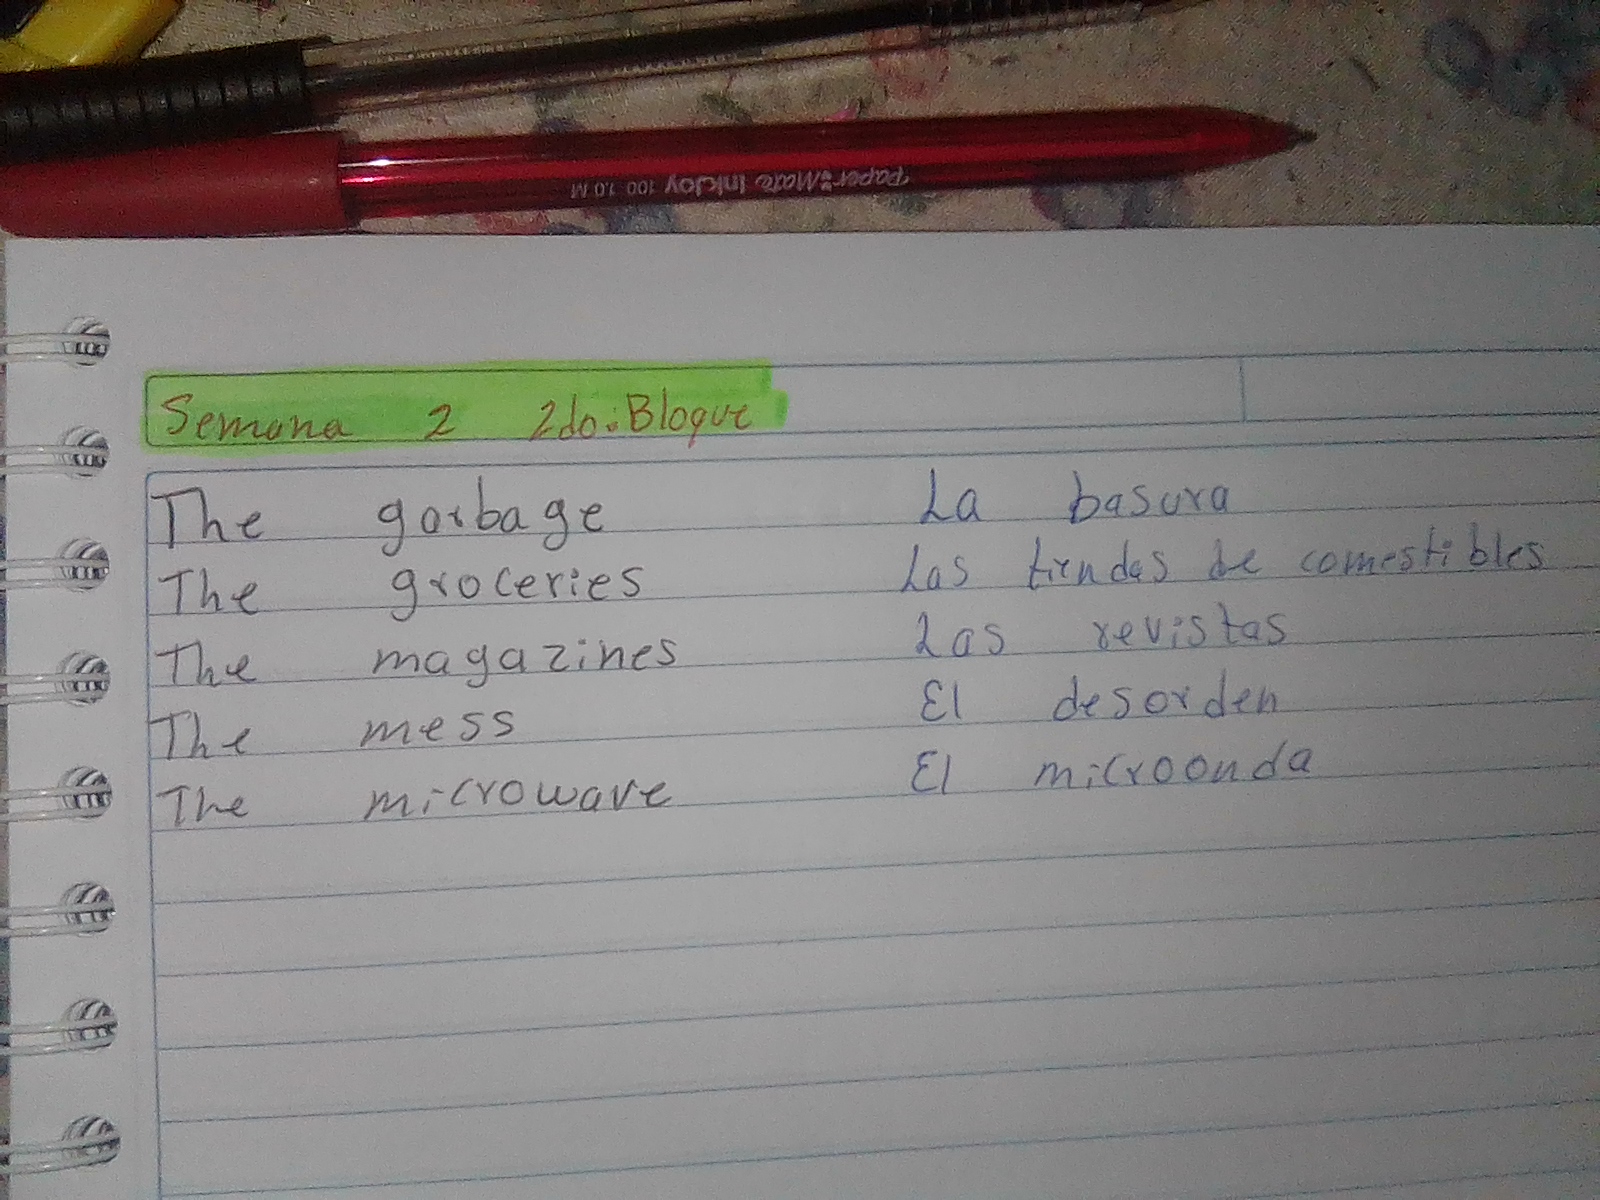 Paper Mate InkJoy 100 1.0 M
Semana 2 2do. Bloque
The garbage La basura
The groceries Las tiendas de comestibles
The magazines Las revistas
The mess El desorden
The microwave El microonda